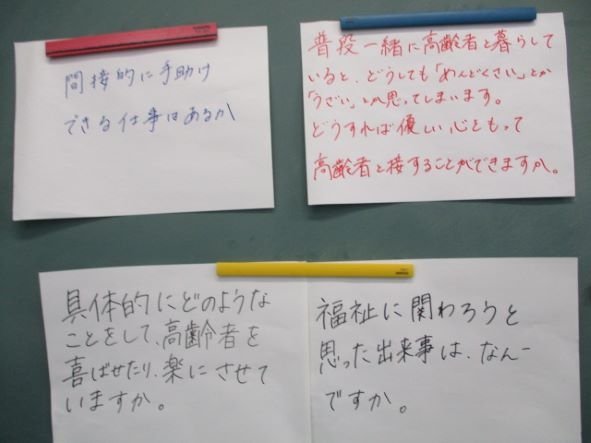 間接的に手助け
できる仕事はあるか
普段一緒に高齢者と暮らして
いると、どうしても「めんどくさい」とか
「うざい」とか思ってしまいます。
どうすれば優しい心をもって
高齢者と接することができますか。
具体的にどのような
ことをして、高齢者を
喜ばせたり、楽にさせて
いますか。
福祉に関わろうと
思った出来事は、なん
ですか。